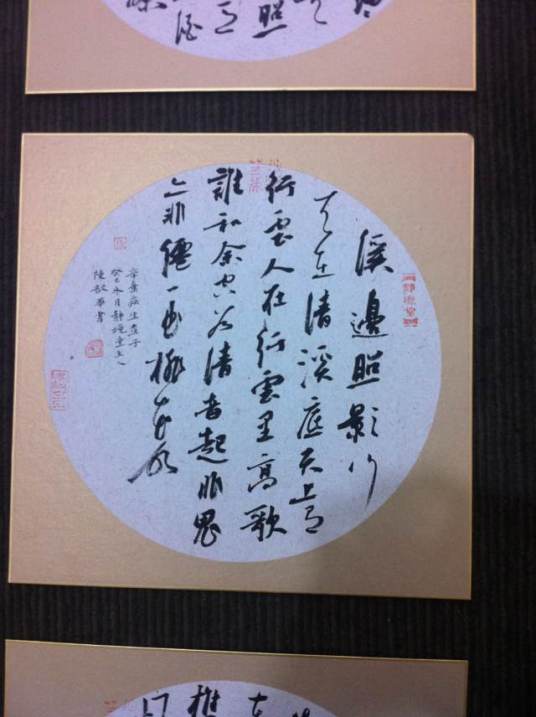 照
酒
溪邊照影行
天在清溪底天上有
行雲人在行雲里高歌
誰和余空谷清音起非鬼
亦非僊一曲桃花水
辛棄疾生查子
癸巳冬月靜堂主人
陳書
樵